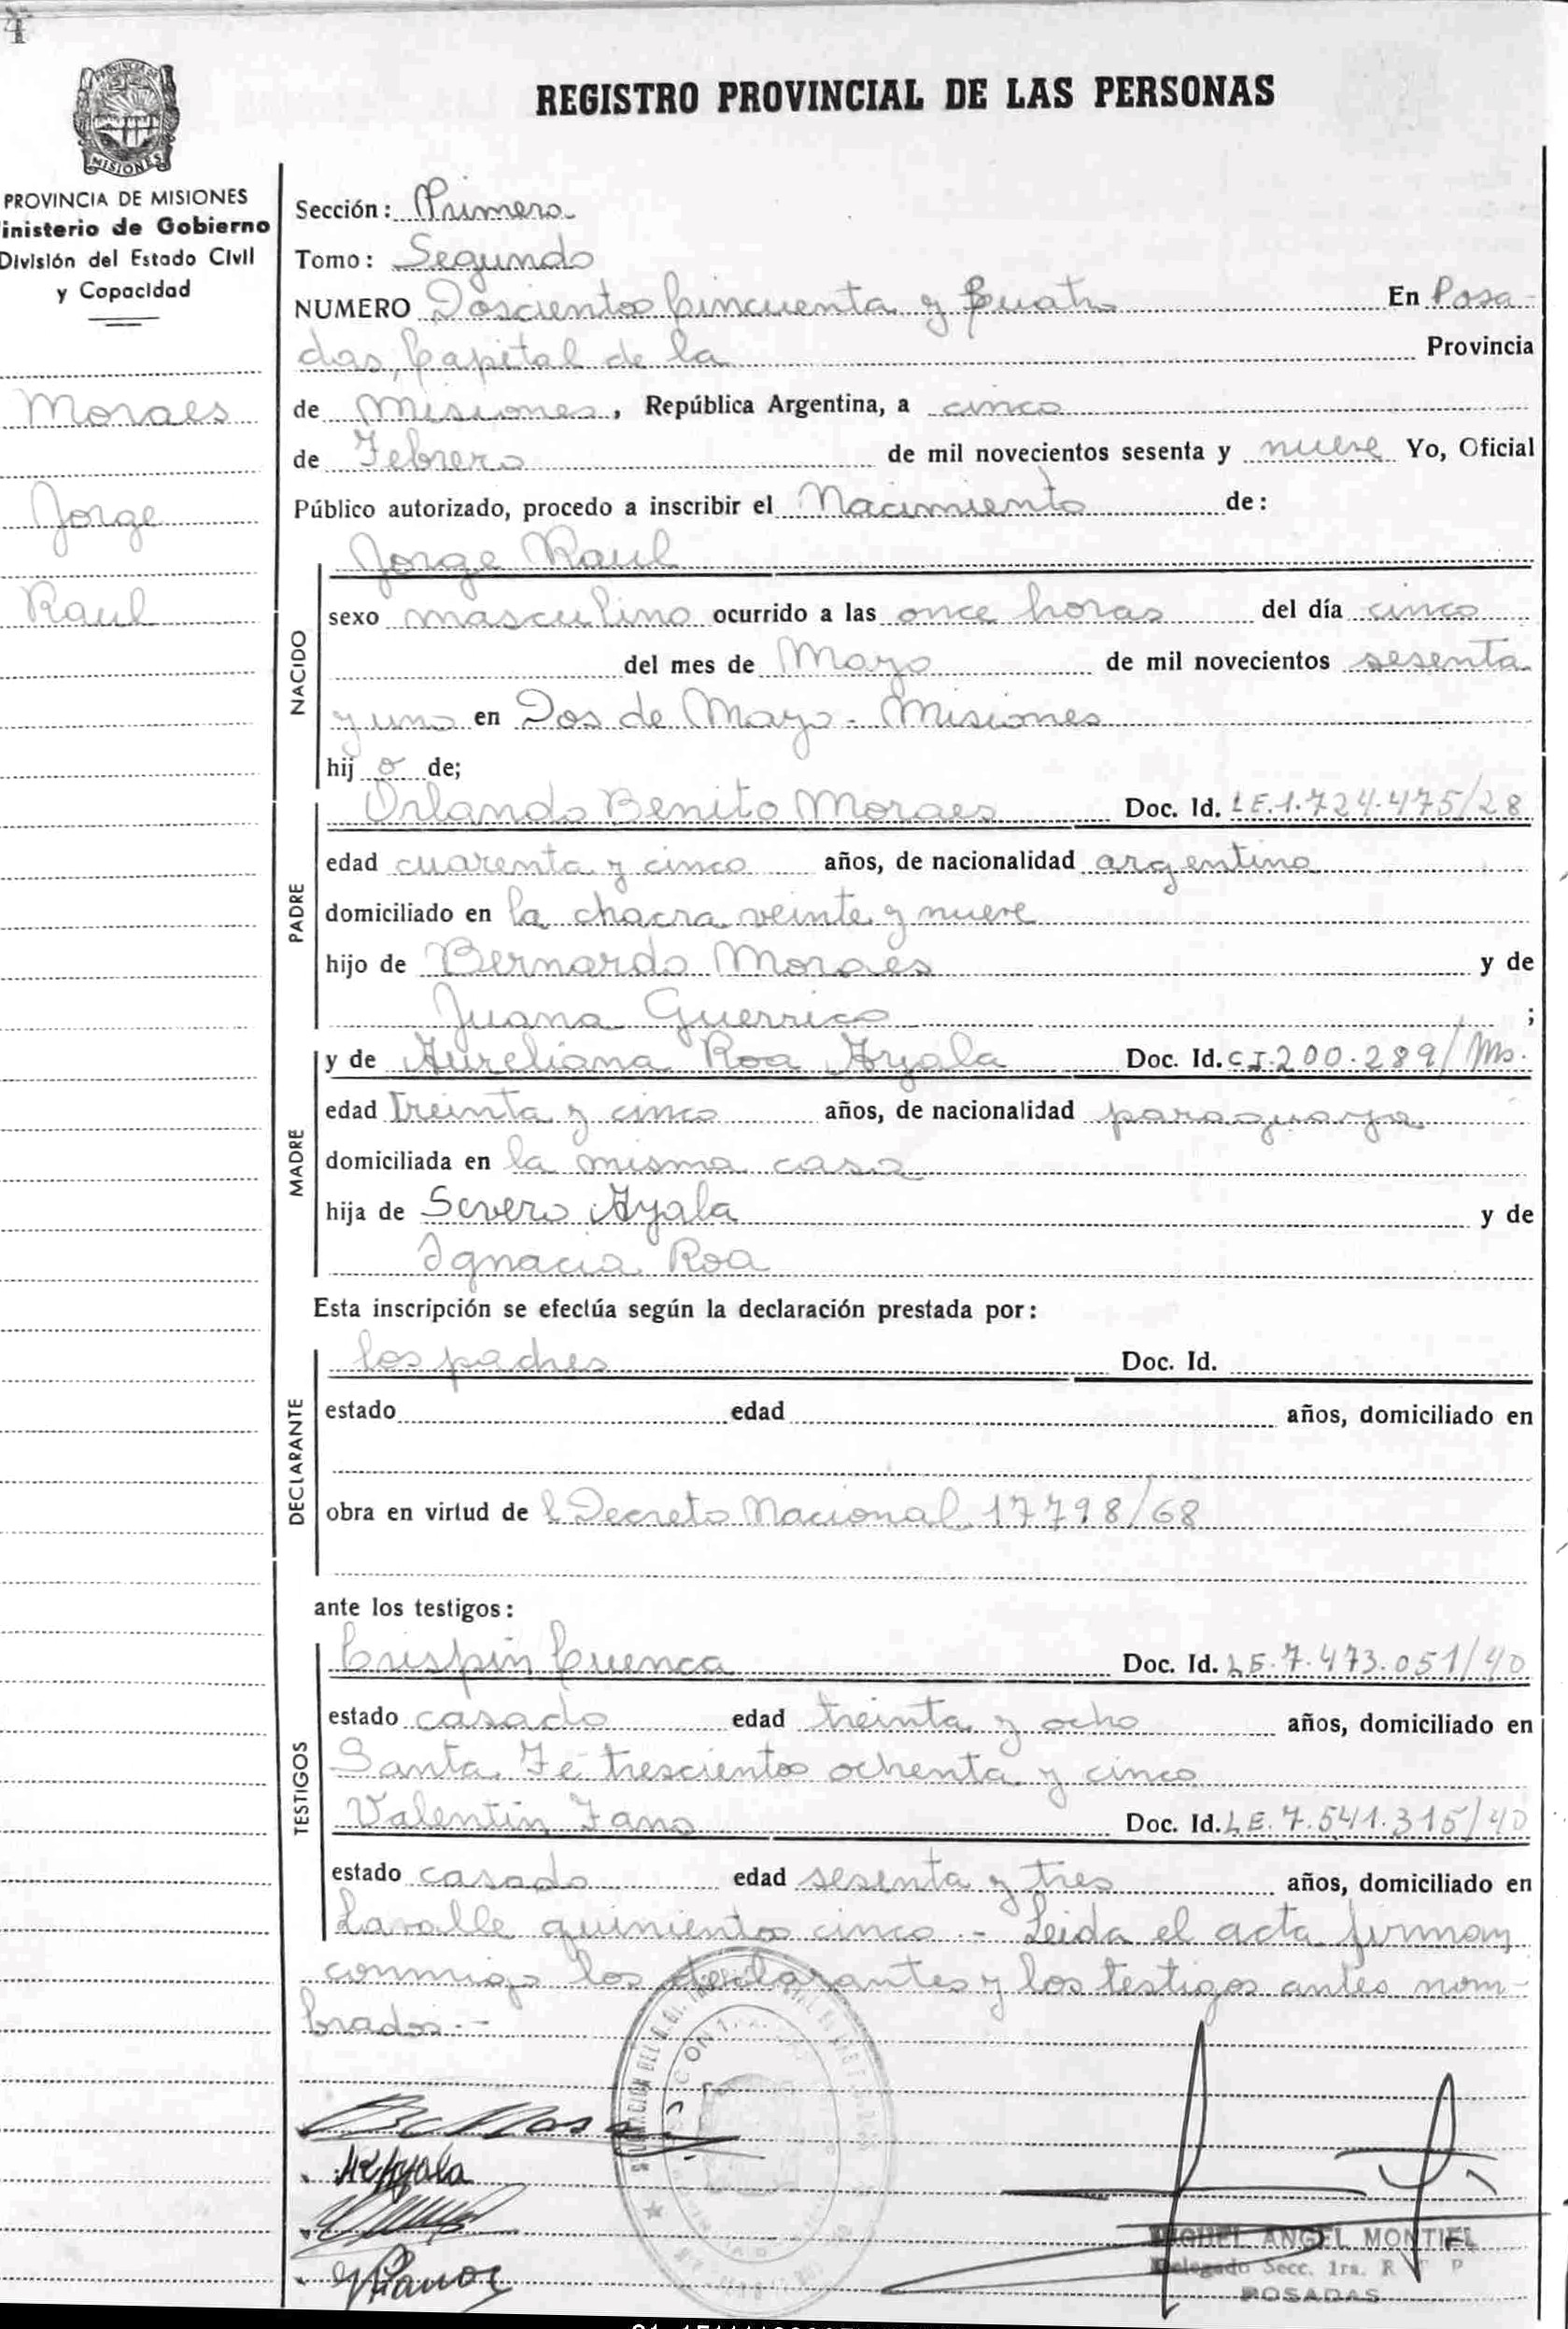 4
REGISTRO PROVINCIAL DE LAS PERSONAS
MISIONES
PROVINCIA DE MISIONES
inisterio de Gobierno
División del Estado Civil
y Capacidad
Moraes
Jorge
Raul
Sección: Primera
Tomo: Segundo
NUMERO Doscientos Cincuenta y Cuatro En Posa-
das, Capital de la Provincia
de Misiones, República Argentina, a cinco
de Febrero de mil novecientos sesenta y nueve Yo, Oficial
Público autorizado, procedo a inscribir el Nacimiento de:
NACIDO
Jorge Raul
sexo masculino ocurrido a las once horas del día cinco
del mes de Mayo de mil novecientos sesenta
y uno en Dos de Mayo - Misiones
hij o de;
PADRE
Orlando Benito Moraes Doc. Id. LE.1.724.475/28
edad cuarenta y cinco años, de nacionalidad argentino
domiciliado en la chacra veinte y nueve
hijo de Bernardo Moraes y de
Juana Guerrico ;
MADRE
y de Aureliana Roa Ayala Doc. Id. CI.200.289/Ms.
edad treinta y cinco años, de nacionalidad paraguaya
domiciliada en la misma casa
hija de Severo Ayala y de
Ignacia Roa
Esta inscripción se efectúa según la declaración prestada por:
DECLARANTE
los padres Doc. Id.
estado edad años, domiciliado en
obra en virtud de l Decreto Nacional 17798/68
ante los testigos:
TESTIGOS
Crispin Cuenca Doc. Id. LE.7.473.051/40
estado casado edad treinta y ocho años, domiciliado en
Santa Fé trescientos ochenta y cinco
Valentin Fano Doc. Id. LE.7.541.315/40
estado casado edad sesenta y tres años, domiciliado en
Lavalle quinientos cinco.- Leida el acta firman
conmigo los declarantes y los testigos antes nom-
brados.-
MIGUEL ANGEL MONTIEL
Delegado Secc. 1ra. R P
POSADAS